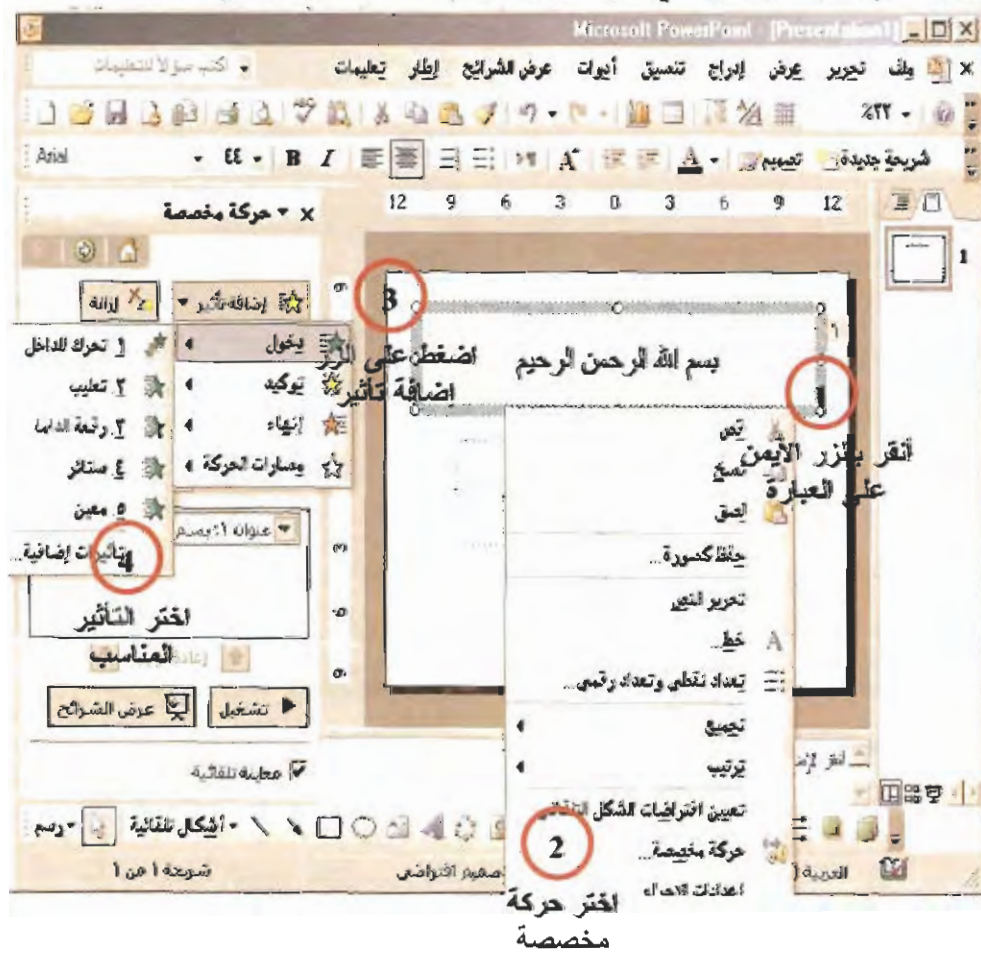 Microsoft PowerPoint - [Presentation1]
ملف تحرير عرض إدراج تنسيق أدوات عرض الشرائح إطار تعليمات
اكتب سؤالاً للتعليمات
٢٢%
Arial ٤٤ B I A A تصميم شريحة جديدة
حركة مخصصة
12 9 6 3 0 3 6 9 12
1
إضافة تأثير
إزالة
3
دخول
توكيد
إنهاء
مسارات الحركة
١ تحرك للداخل
٢ تعليب
٣ رقعة الداما
٤ ستائر
٥ معين
تأثيرات إضافية...
اضغطن على الزر
اضافة تأثير
بسم الله الرحمن الرحيم
١
أنقر بالزر الأيمن
على العبارة
عنوان ١: بسم
4
اختر التأثير
المناسب
قص
نسخ
لصق
حفظ كصورة...
تحرير النص
خط...
تعداد نقطي وتعداد رقمي...
تجميع
ترتيب
تعيين افتراضيات الشكل التلقائي
حركة مخصصة...
إعدادات الإجراء
2
اختر حركة
مخصصة
9 6 3 0 6 9
تشغيل
عرض الشرائح
معاينة تلقائية
انقر لإضافة
رسم
أشكال تلقائية
شريحة ١ من ١
تصميم افتراضي
العربية